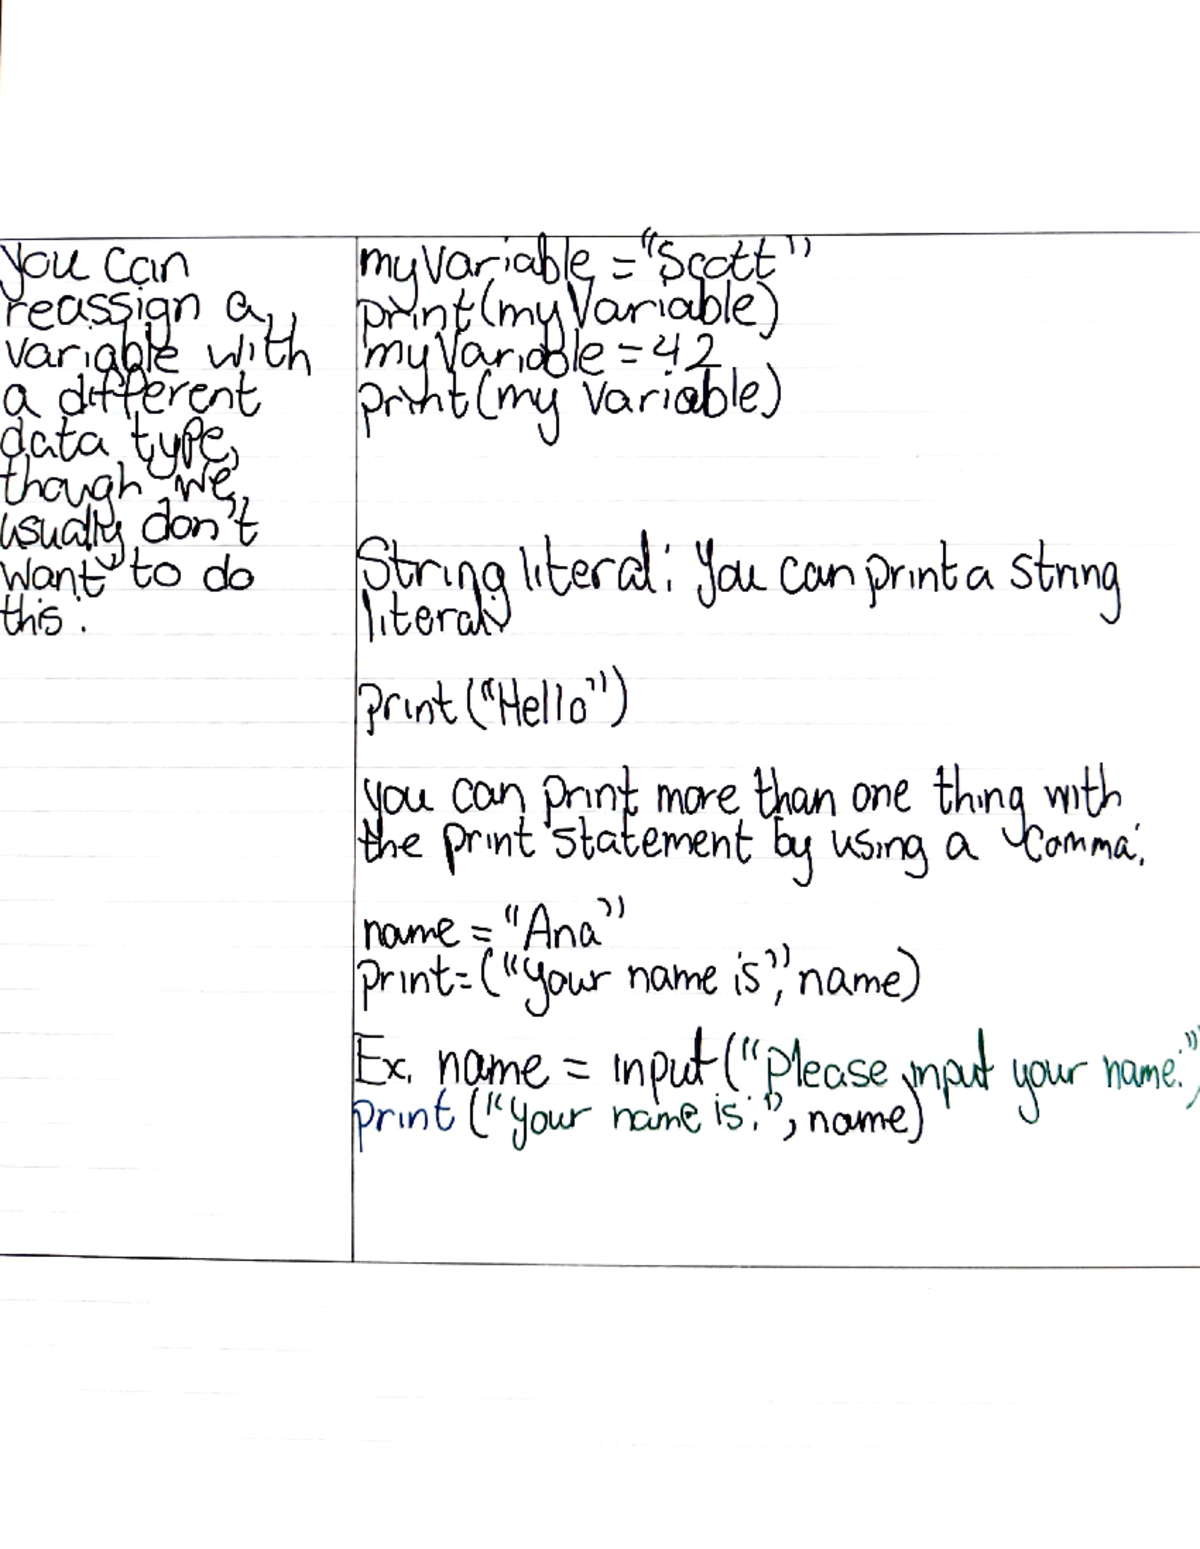 you can
reassign a
variable with
a different
data type,
though we
usually don't
want to do
this.
myVariable = "Scott"
print(myVariable)
myVariable = 42
print(my Variable)
String literal: You can print a string
literal
print ("Hello")
you can print more than one thing with
the print statement by using a comma:
name = "Ana"
print=("Your name is", name)
Ex. name = input("Please input your name:")
print ("Your name is:", name)